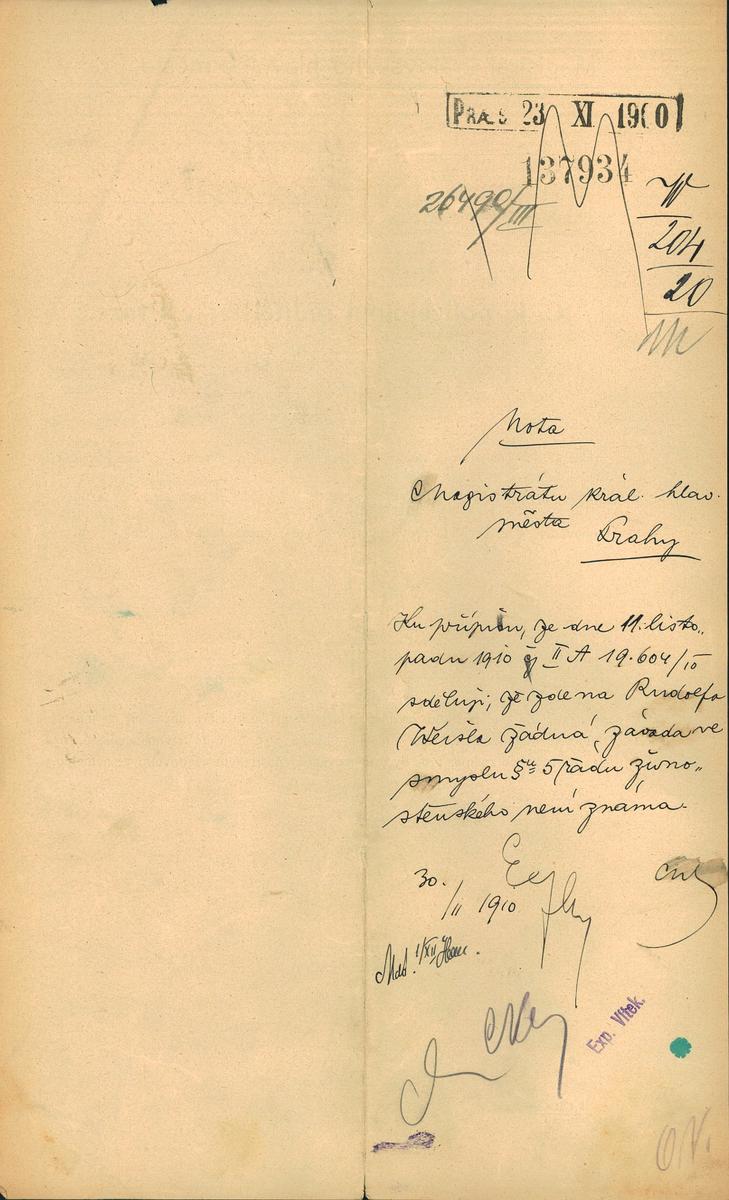 Præs 23 XI 1910
137934
26490/III
W
204
20
Nota
Magistrátu král. hlav.
města Prahy
Ku přípisu, ze dne 11. listo„
padu 1910 čj II A 19.604/10
sděluji, že zde na Rudolfa
Weisla žádná závada ve
smyslu §u 5 řádu živno„
stenského není známa.
30.
/11 1910
1/XII
Exp. Vltek.
O.N.